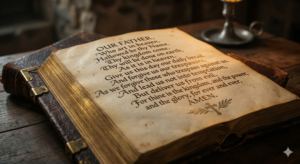 OUR FATHER,
Who art in heaven,
Hallowed be thy Name.
Thy kingdom come.
Thy will be done on earth,
As it is in heaven.
Give us this day our daily bread.
And forgive us our trespasses,
As we forgive those who trespass against us.
And lead us not into temptation,
But deliver us from evil.
For thine is the kingdom, and the power,
and the glory, for ever and ever.
AMEN.